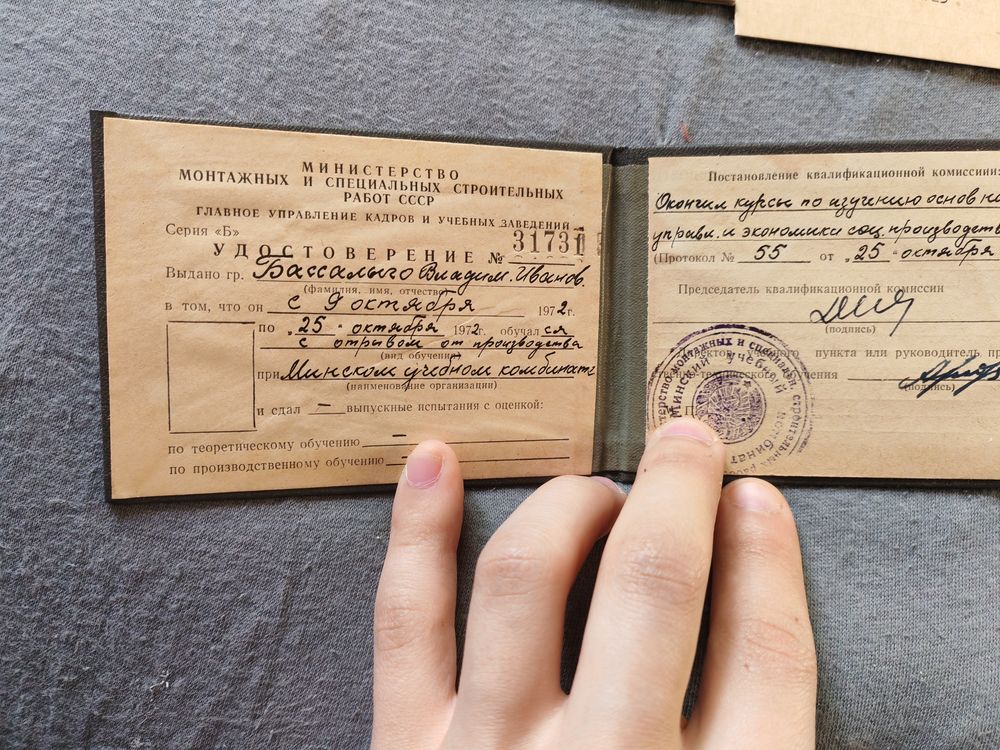 МИНИСТЕРСТВО
МОНТАЖНЫХ И СПЕЦИАЛЬНЫХ СТРОИТЕЛЬНЫХ
РАБОТ СССР
ГЛАВНОЕ УПРАВЛЕНИЕ КАДРОВ И УЧЕБНЫХ ЗАВЕДЕНИЙ
Серия «Б»
УДОСТОВЕРЕНИЕ № 31731
Выдано гр. Бассалыго Владим. Иванов.
(фамилия, имя, отчество)
в том, что он с 9 октября 1972 г.
по „25" октября 1972 г. обучался
с отрывом от производства
(вид обучения)
при Минском учебном комбинате
(наименование организации)
и сдал — выпускные испытания с оценкой:
по теоретическому обучению —
по производственному обучению —
Постановление квалификационной комиссии:
Окончил курсы по изучению основ
управл. и экономики соц. производств
(Протокол № 55 от „25" октября
Председатель квалификационной комиссии
(подпись)
учебного пункта или руководитель
(подпись)
монтажных и специальн. строительных
Минский учебный комбинат